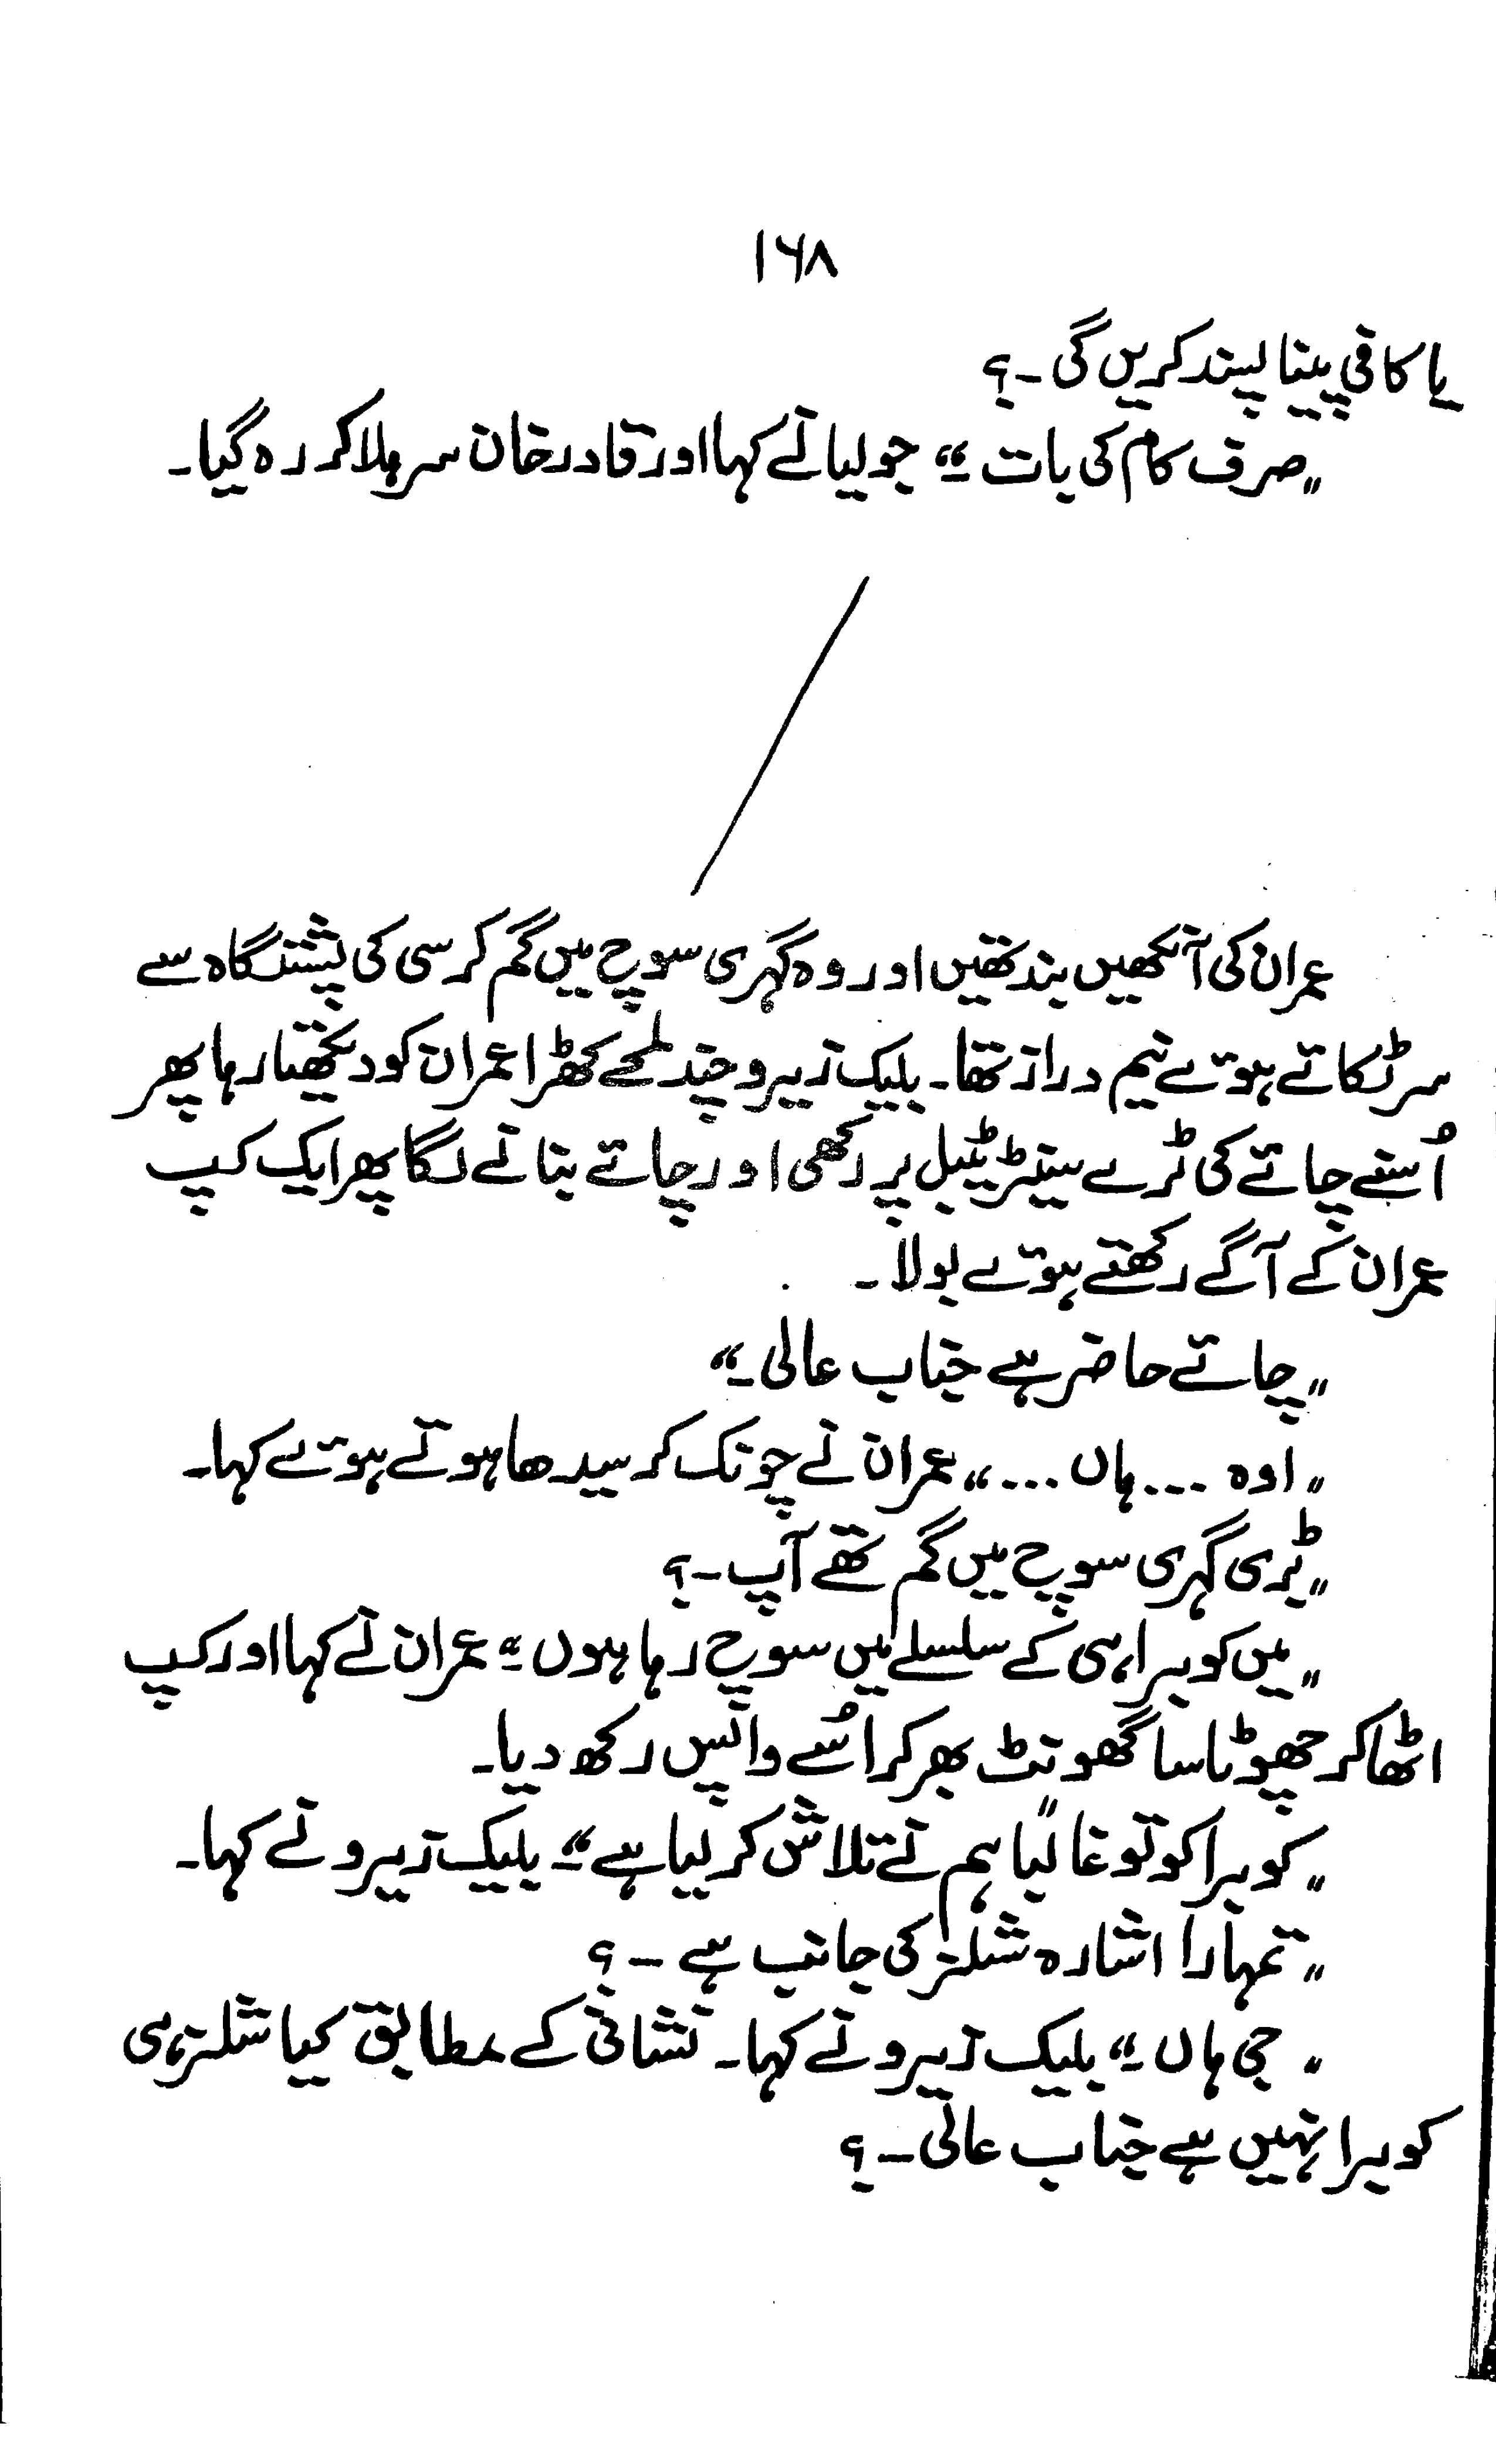 ۱۶۸
یا کافی پینا پسند کریں گی ۔؟
"صرف کام کی بات ۔" جولیا نے کہا اور قادر خان سر ہلا کر رہ گیا۔
عمران کی آنکھیں بند تھیں اور وہ گہری سوچ میں گم کرسی کی پشت گاہ سے
سر ٹکائے ہوئے نیم دراز تھا۔ بلیک زیرو چند لمحے کھڑا عمران کو دیکھتا رہا پھر
اُسنے چائے کی ٹرے سینٹر ٹیبل پر رکھی اور چائے بنانے لگا پھر ایک کپ
عمران کے آگے رکھتے ہوئے بولا۔
"چائے حاضر ہے جناب عالی ۔"
"اوہ ... ہاں ..." عمران نے چونک کر سیدھا ہوتے ہوئے کہا۔
"بڑی گہری سوچ میں گم تھے آپ ۔؟
"میں کوبرا ہی کے سلسلے میں سوچ رہا ہوں ۔" عمران نے کہا اور کپ
اٹھا کر چھوٹا سا گھونٹ بھر کر اُسے واپس رکھ دیا۔
"کوبرا کو تو غالباً ہم نے تلاش کر لیا ہے ۔" بلیک زیرو نے کہا۔
"تمہارا اشارہ شلنر کی جانب ہے ۔؟
"جی ہاں ۔" بلیک زیرو نے کہا۔ نشانی کے مطابق کیا شلنر ہی
کوبرا نہیں ہے جناب عالی ۔؟